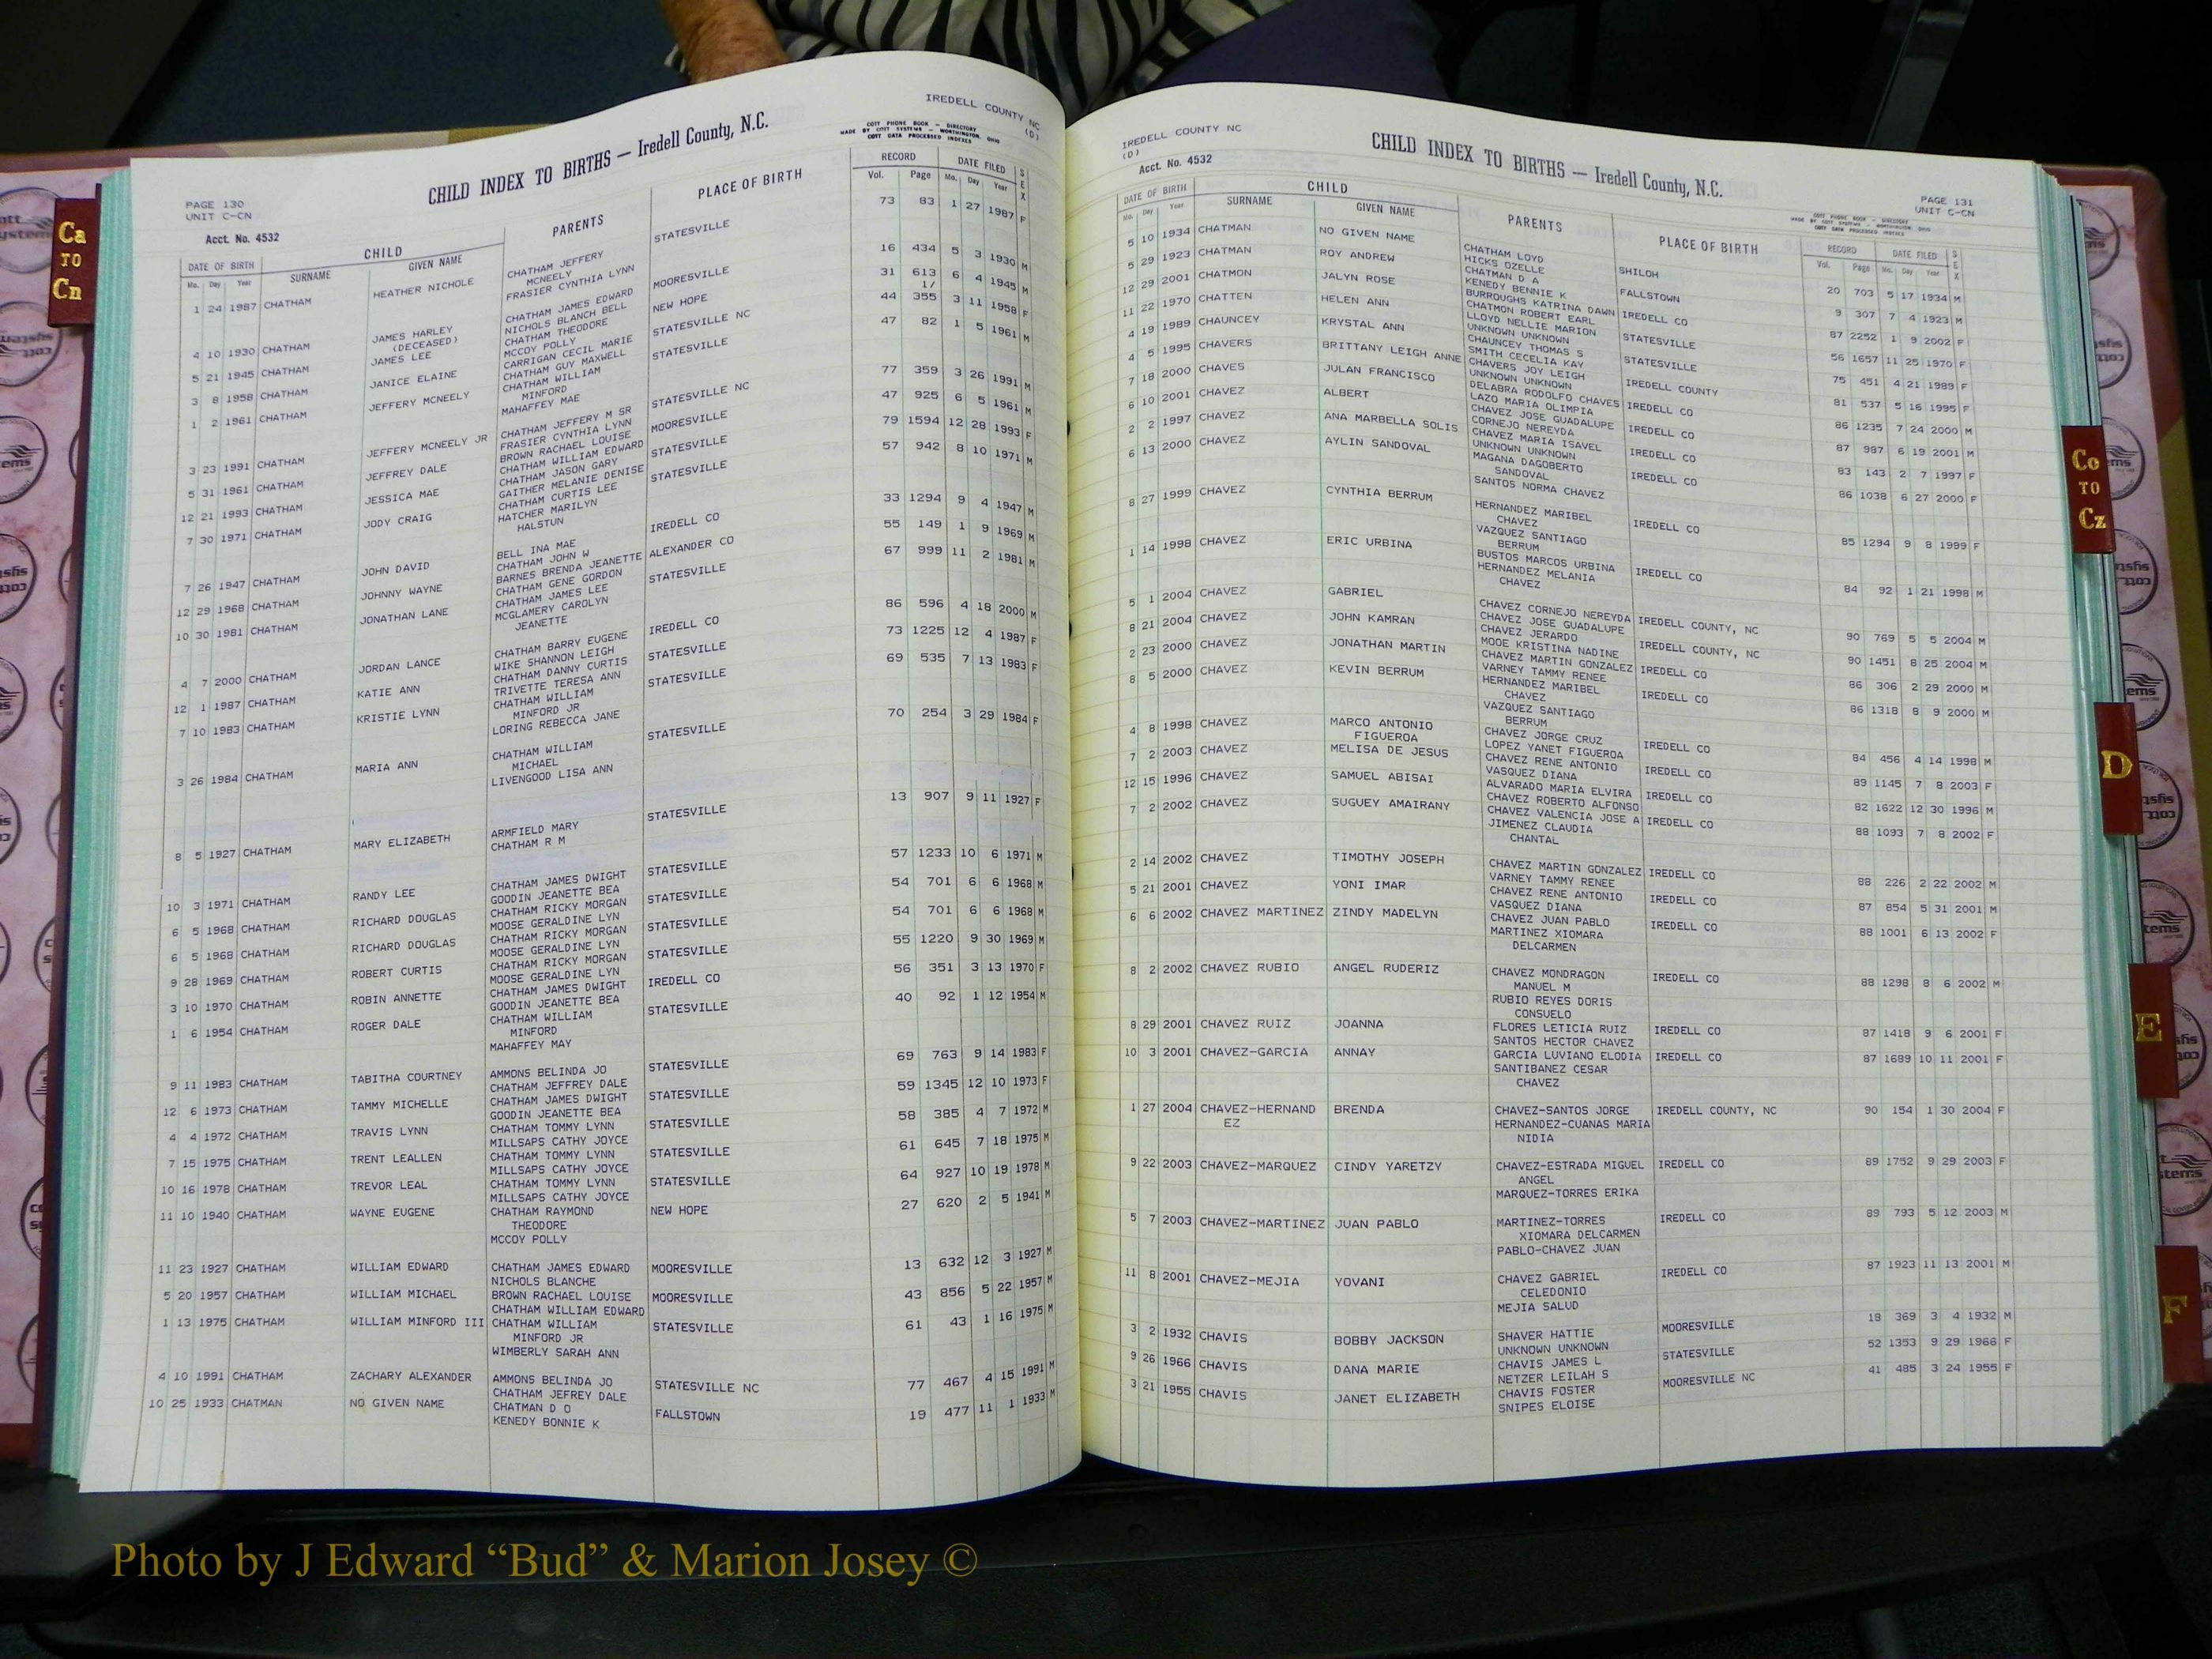 IREDELL COUNTY NC
(D)
COTT PHONE BOOK — DIRECTORY
MADE BY COTT SYSTEMS — WORTHINGTON, OHIO
COTT DATA PROCESSED INDEXES
CHILD INDEX TO BIRTHS — Iredell County, N.C.
PAGE 130
UNIT C-CN
Acct. No. 4532
DATE OF BIRTH CHILD PARENTS PLACE OF BIRTH RECORD DATE FILED SEX
Mo. Day Year SURNAME GIVEN NAME Vol. Page Mo. Day Year
1 24 1987 CHATHAM HEATHER NICHOLE CHATHAM JEFFERY STATESVILLE 73 83 1 27 1987 F
MCNEELY
FRASIER CYNTHIA LYNN
4 10 1930 CHATHAM JAMES HARLEY CHATHAM JAMES EDWARD MOORESVILLE 16 434 5 3 1930 M
(DECEASED) NICHOLS BLANCH BELL
5 21 1945 CHATHAM JAMES LEE CHATHAM THEODORE NEW HOPE 31 613 6 4 1945 M
MCCOY POLLY 17
3 8 1958 CHATHAM JANICE ELAINE CARRIGAN CECIL MARIE STATESVILLE NC 44 355 3 11 1958 F
CHATHAM GUY MAXWELL
1 2 1961 CHATHAM JEFFERY MCNEELY CHATHAM WILLIAM STATESVILLE 47 82 1 5 1961 M
MINFORD
MAHAFFEY MAE
3 23 1991 CHATHAM JEFFERY MCNEELY JR CHATHAM JEFFERY M SR STATESVILLE NC 77 359 3 26 1991 M
FRASIER CYNTHIA LYNN
5 31 1961 CHATHAM JEFFREY DALE BROWN RACHAEL LOUISE MOORESVILLE 47 925 6 5 1961 M
CHATHAM WILLIAM EDWARD
12 21 1993 CHATHAM JESSICA MAE CHATHAM JASON GARY STATESVILLE 79 1594 12 28 1993 F
GAITHER MELANIE DENISE
7 30 1971 CHATHAM JODY CRAIG CHATHAM CURTIS LEE STATESVILLE 57 942 8 10 1971 M
HATCHER MARILYN
HALSTUN
7 26 1947 CHATHAM JOHN DAVID BELL INA MAE IREDELL CO 33 1294 9 4 1947 M
CHATHAM JOHN W
12 29 1968 CHATHAM JOHNNY WAYNE BARNES BRENDA JEANETTE ALEXANDER CO 55 149 1 9 1969 M
CHATHAM GENE GORDON
10 30 1981 CHATHAM JONATHAN LANE CHATHAM JAMES LEE STATESVILLE 67 999 11 2 1981 M
MCGLAMERY CAROLYN
JEANETTE
4 7 2000 CHATHAM JORDAN LANCE CHATHAM BARRY EUGENE IREDELL CO 86 596 4 18 2000 M
WIKE SHANNON LEIGH
12 1 1987 CHATHAM KATIE ANN CHATHAM DANNY CURTIS STATESVILLE 73 1225 12 4 1987 F
TRIVETTE TERESA ANN
7 10 1983 CHATHAM KRISTIE LYNN CHATHAM WILLIAM STATESVILLE 69 535 7 13 1983 F
MINFORD JR
LORING REBECCA JANE
3 26 1984 CHATHAM MARIA ANN CHATHAM WILLIAM STATESVILLE 70 254 3 29 1984 F
MICHAEL
LIVENGOOD LISA ANN
8 5 1927 CHATHAM MARY ELIZABETH ARMFIELD MARY STATESVILLE 13 907 9 11 1927 F
CHATHAM R M
10 3 1971 CHATHAM RANDY LEE CHATHAM JAMES DWIGHT STATESVILLE 57 1233 10 6 1971 M
GOODIN JEANETTE BEA
6 5 1968 CHATHAM RICHARD DOUGLAS CHATHAM RICKY MORGAN STATESVILLE 54 701 6 6 1968 M
MOOSE GERALDINE LYN
6 5 1968 CHATHAM RICHARD DOUGLAS CHATHAM RICKY MORGAN STATESVILLE 54 701 6 6 1968 M
MOOSE GERALDINE LYN
9 28 1969 CHATHAM ROBERT CURTIS CHATHAM RICKY MORGAN STATESVILLE 55 1220 9 30 1969 M
MOOSE GERALDINE LYN
3 10 1970 CHATHAM ROBIN ANNETTE CHATHAM JAMES DWIGHT IREDELL CO 56 351 3 13 1970 F
GOODIN JEANETTE BEA
1 6 1954 CHATHAM ROGER DALE CHATHAM WILLIAM STATESVILLE 40 92 1 12 1954 M
MINFORD
MAHAFFEY MAY
9 11 1983 CHATHAM TABITHA COURTNEY AMMONS BELINDA JO STATESVILLE 69 763 9 14 1983 F
CHATHAM JEFFREY DALE
12 6 1973 CHATHAM TAMMY MICHELLE CHATHAM JAMES DWIGHT STATESVILLE 59 1345 12 10 1973 F
GOODIN JEANETTE BEA
4 4 1972 CHATHAM TRAVIS LYNN CHATHAM TOMMY LYNN STATESVILLE 58 385 4 7 1972 M
MILLSAPS CATHY JOYCE
7 15 1975 CHATHAM TRENT LEALLEN CHATHAM TOMMY LYNN STATESVILLE 61 645 7 18 1975 M
MILLSAPS CATHY JOYCE
10 16 1978 CHATHAM TREVOR LEAL CHATHAM TOMMY LYNN STATESVILLE 64 927 10 19 1978 M
MILLSAPS CATHY JOYCE
11 10 1940 CHATHAM WAYNE EUGENE CHATHAM RAYMOND NEW HOPE 27 620 2 5 1941 M
THEODORE
MCCOY POLLY
11 23 1927 CHATHAM WILLIAM EDWARD CHATHAM JAMES EDWARD MOORESVILLE 13 632 12 3 1927 M
NICHOLS BLANCHE
5 20 1957 CHATHAM WILLIAM MICHAEL BROWN RACHAEL LOUISE MOORESVILLE 43 856 5 22 1957 M
CHATHAM WILLIAM EDWARD
1 13 1975 CHATHAM WILLIAM MINFORD III CHATHAM WILLIAM STATESVILLE 61 43 1 16 1975 M
MINFORD JR
WIMBERLY SARAH ANN
4 10 1991 CHATHAM ZACHARY ALEXANDER AMMONS BELINDA JO STATESVILLE NC 77 467 4 15 1991 M
CHATHAM JEFREY DALE
10 25 1933 CHATMAN NO GIVEN NAME CHATMAN D O FALLSTOWN 19 477 11 1 1933 M
KENEDY BONNIE K
IREDELL COUNTY NC
(D)
Acct. No. 4532
CHILD INDEX TO BIRTHS — Iredell County, N.C.
PAGE 131
UNIT C-CN
COTT PHONE BOOK — DIRECTORY
MADE BY COTT SYSTEMS — WORTHINGTON, OHIO
COTT DATA PROCESSED INDEXES
DATE OF BIRTH CHILD PARENTS PLACE OF BIRTH RECORD DATE FILED SEX
Mo. Day Year SURNAME GIVEN NAME Vol. Page Mo. Day Year
5 10 1934 CHATMAN NO GIVEN NAME CHATHAM LOYD SHILOH 20 703 5 17 1934 M
HICKS OZELLE
5 29 1923 CHATMAN ROY ANDREW CHATMAN D A FALLSTOWN 9 307 7 4 1923 M
KENEDY BENNIE K
12 29 2001 CHATMON JALYN ROSE BURROUGHS KATRINA DAWN IREDELL CO 87 2252 1 9 2002 F
CHATMON ROBERT EARL
11 22 1970 CHATTEN HELEN ANN LLOYD NELLIE MARION STATESVILLE 56 1657 11 25 1970 F
UNKNOWN UNKNOWN
4 19 1989 CHAUNCEY KRYSTAL ANN CHAUNCEY THOMAS S STATESVILLE 75 451 4 21 1989 F
SMITH CECELIA KAY
4 5 1995 CHAVERS BRITTANY LEIGH ANNE CHAVERS JOY LEIGH IREDELL COUNTY 81 537 5 16 1995 F
UNKNOWN UNKNOWN
7 18 2000 CHAVES JULAN FRANCISCO DELABRA RODOLFO CHAVES IREDELL CO 86 1235 7 24 2000 M
LAZO MARIA OLIMPIA
6 10 2001 CHAVEZ ALBERT CHAVEZ JOSE GUADALUPE IREDELL CO 87 987 6 19 2001 M
CORNEJO NEREYDA
2 2 1997 CHAVEZ ANA MARBELLA SOLIS CHAVEZ MARIA ISAVEL IREDELL CO 83 143 2 7 1997 F
UNKNOWN UNKNOWN
6 13 2000 CHAVEZ AYLIN SANDOVAL MAGANA DAGOBERTO IREDELL CO 86 1038 6 27 2000 F
SANDOVAL
SANTOS NORMA CHAVEZ
8 27 1999 CHAVEZ CYNTHIA BERRUM HERNANDEZ MARIBEL IREDELL CO 85 1294 9 8 1999 F
CHAVEZ
VAZQUEZ SANTIAGO
BERRUM
1 14 1998 CHAVEZ ERIC URBINA BUSTOS MARCOS URBINA IREDELL CO 84 92 1 21 1998 M
HERNANDEZ MELANIA
CHAVEZ
5 1 2004 CHAVEZ GABRIEL CHAVEZ CORNEJO NEREYDA IREDELL COUNTY, NC 90 769 5 5 2004 M
CHAVEZ JOSE GUADALUPE
8 21 2004 CHAVEZ JOHN KAMRAN CHAVEZ JERARDO IREDELL COUNTY, NC 90 1451 8 25 2004 M
MOOE KRISTINA NADINE
2 23 2000 CHAVEZ JONATHAN MARTIN CHAVEZ MARTIN GONZALEZ IREDELL CO 86 306 2 29 2000 M
VARNEY TAMMY RENEE
8 5 2000 CHAVEZ KEVIN BERRUM HERNANDEZ MARIBEL IREDELL CO 86 1318 8 9 2000 M
CHAVEZ
VAZQUEZ SANTIAGO
BERRUM
4 8 1998 CHAVEZ MARCO ANTONIO CHAVEZ JORGE CRUZ IREDELL CO 84 456 4 14 1998 M
FIGUEROA LOPEZ YANET FIGUEROA
7 2 2003 CHAVEZ MELISA DE JESUS CHAVEZ RENE ANTONIO IREDELL CO 89 1145 7 8 2003 F
VASQUEZ DIANA
12 15 1996 CHAVEZ SAMUEL ABISAI ALVARADO MARIA ELVIRA IREDELL CO 82 1622 12 30 1996 M
CHAVEZ ROBERTO ALFONSO
7 2 2002 CHAVEZ SUGUEY AMAIRANY CHAVEZ VALENCIA JOSE A IREDELL CO 88 1093 7 8 2002 F
JIMENEZ CLAUDIA
CHANTAL
2 14 2002 CHAVEZ TIMOTHY JOSEPH CHAVEZ MARTIN GONZALEZ IREDELL CO 88 226 2 22 2002 M
VARNEY TAMMY RENEE
5 21 2001 CHAVEZ YONI IMAR CHAVEZ RENE ANTONIO IREDELL CO 87 854 5 31 2001 M
VASQUEZ DIANA
6 6 2002 CHAVEZ MARTINEZ ZINDY MADELYN CHAVEZ JUAN PABLO IREDELL CO 88 1001 6 13 2002 F
MARTINEZ XIOMARA
DELCARMEN
8 2 2002 CHAVEZ RUBIO ANGEL RUDERIZ CHAVEZ MONDRAGON IREDELL CO 88 1298 8 6 2002 M
MANUEL M
RUBIO REYES DORIS
CONSUELO
8 29 2001 CHAVEZ RUIZ JOANNA FLORES LETICIA RUIZ IREDELL CO 87 1418 9 6 2001 F
SANTOS HECTOR CHAVEZ
10 3 2001 CHAVEZ-GARCIA ANNAY GARCIA LUVIANO ELODIA IREDELL CO 87 1689 10 11 2001 F
SANTIBANEZ CESAR
CHAVEZ
1 27 2004 CHAVEZ-HERNAND BRENDA CHAVEZ-SANTOS JORGE IREDELL COUNTY, NC 90 154 1 30 2004 F
EZ HERNANDEZ-CUANAS MARIA
NIDIA
9 22 2003 CHAVEZ-MARQUEZ CINDY YARETZY CHAVEZ-ESTRADA MIGUEL IREDELL CO 89 1752 9 29 2003 F
ANGEL
MARQUEZ-TORRES ERIKA
5 7 2003 CHAVEZ-MARTINEZ JUAN PABLO MARTINEZ-TORRES IREDELL CO 89 793 5 12 2003 M
XIOMARA DELCARMEN
PABLO-CHAVEZ JUAN
11 8 2001 CHAVEZ-MEJIA YOVANI CHAVEZ GABRIEL IREDELL CO 87 1923 11 13 2001 M
CELEDONIO
MEJIA SALUD
3 2 1932 CHAVIS BOBBY JACKSON SHAVER HATTIE MOORESVILLE 18 369 3 4 1932 M
UNKNOWN UNKNOWN
9 26 1966 CHAVIS DANA MARIE CHAVIS JAMES L STATESVILLE 52 1353 9 29 1966 F
NETZER LEILAH S
3 21 1955 CHAVIS JANET ELIZABETH CHAVIS FOSTER MOORESVILLE NC 41 485 3 24 1955 F
SNIPES ELOISE
Ca
TO
Cn
Co
TO
Cz
D
E
F
Photo by J Edward “Bud” & Marion Josey ©